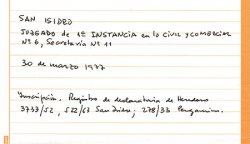 SAN ISIDRO
JUZGADO de 1ª INSTANCIA en lo CIVIL y COMERCIAL
Nº 6, Secretaría Nº 11
30 de marzo 1977
Inscripción. Registro de declaratoria de Herederos
3733/52, 522/67 San Isidro; 278/33 Pergamino.